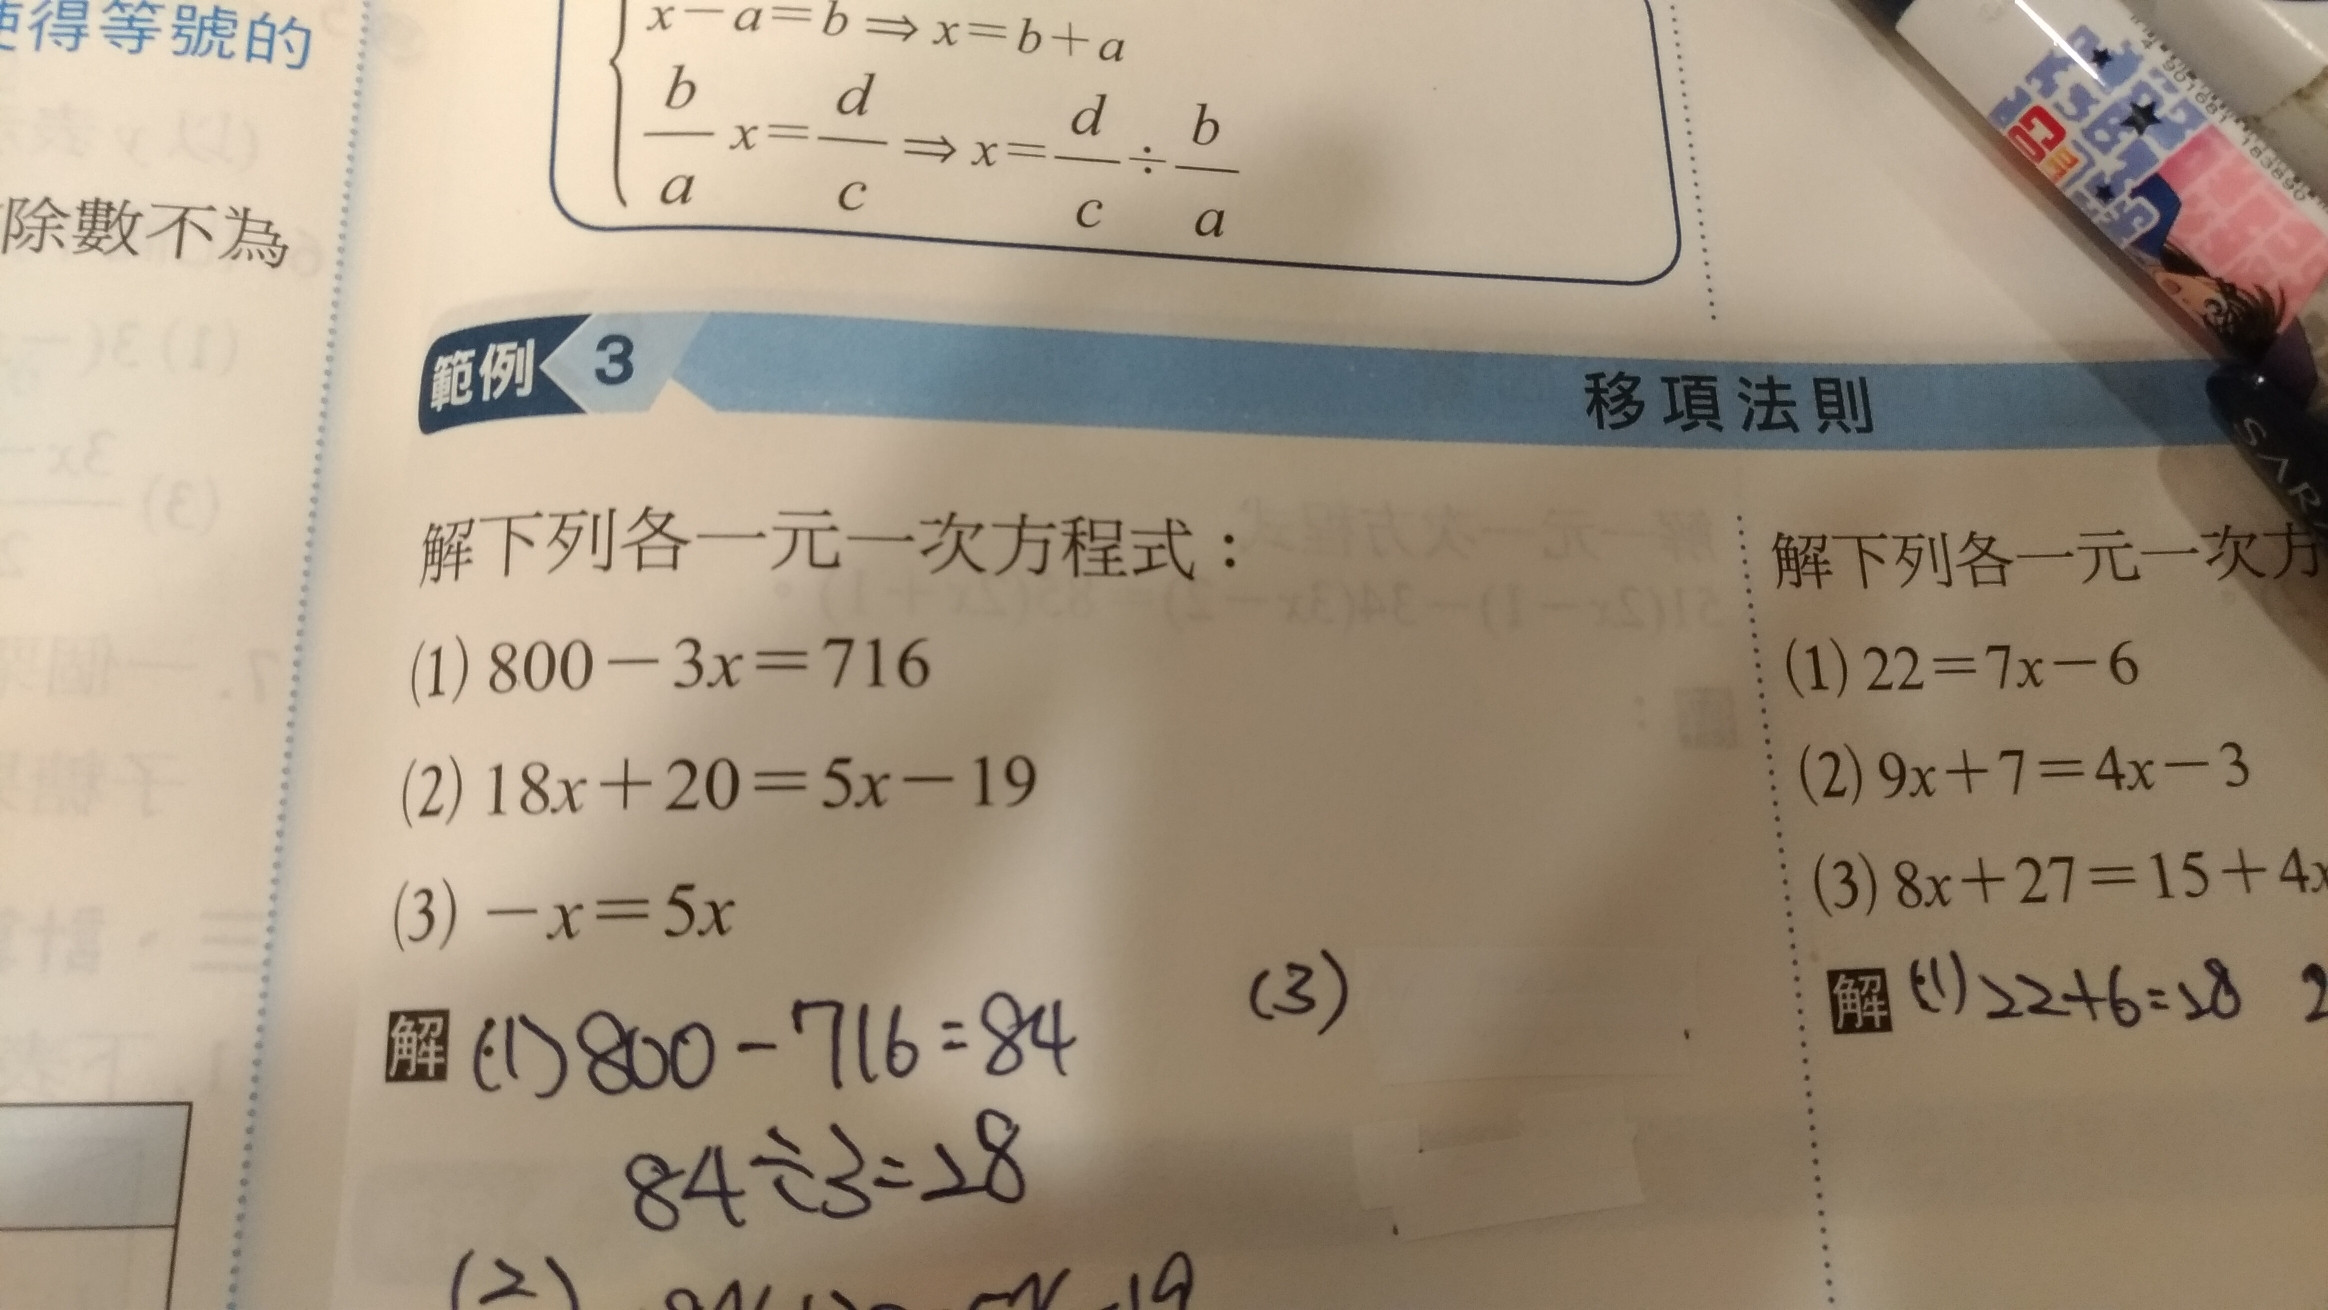 使得等號的
除數不為
x－a＝b⇒x＝b＋a
b/a x＝d/c⇒x＝d/c÷b/a
範例 3
移項法則
解下列各一元一次方程式：
(1) 800－3x＝716
(2) 18x＋20＝5x－19
(3) －x＝5x
解 (1) 800－716＝84
84÷3＝28
(2)
(3)
解下列各一元一次方
(1) 22＝7x－6
(2) 9x＋7＝4x－3
(3) 8x＋27＝15＋4x
解 (1) 22＋6＝28